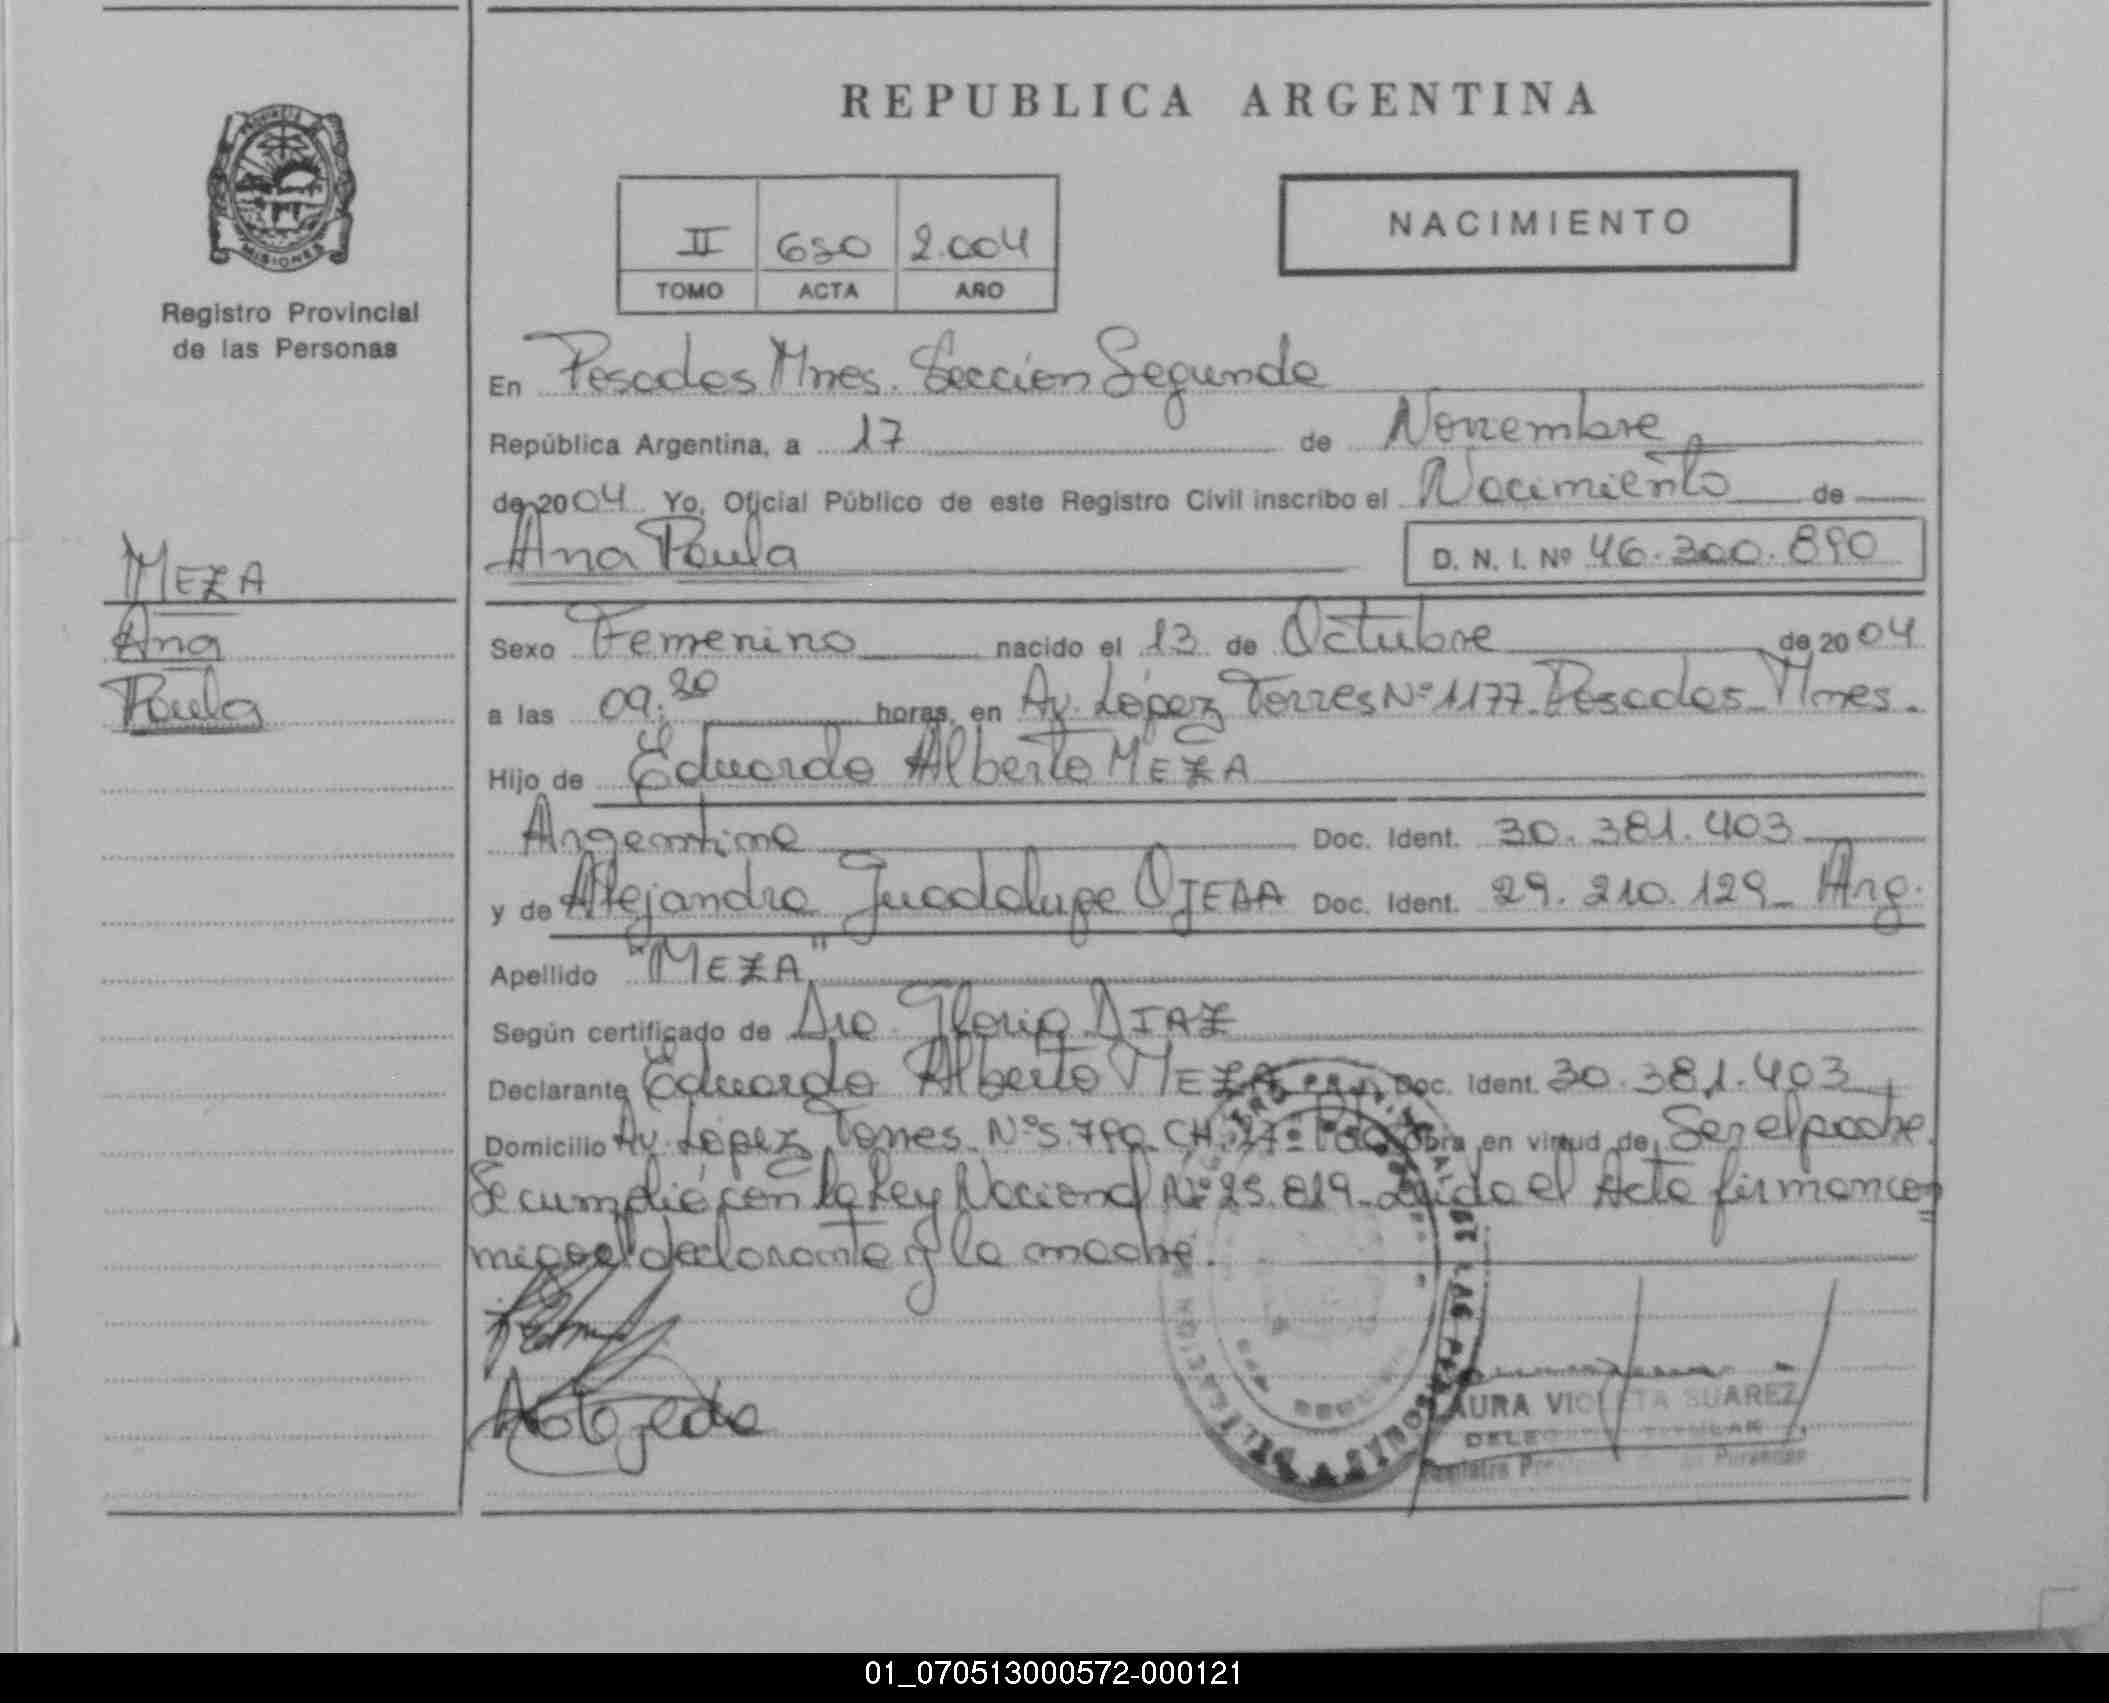 REPUBLICA ARGENTINA
PROVINCIA
MISIONES
Registro Provincial
de las Personas
II 650 2.004
TOMO ACTA AÑO
NACIMIENTO
En Posadas Mnes. Sección Segunda
República Argentina, a 17 de Noviembre
de 2004 Yo, Oficial Público de este Registro Civil inscribo el Nacimiento de
Ana Paula
D. N. I. Nº 46.300.890
MEZA
Ana
Paula
Sexo Femenino nacido el 13 de Octubre de 2004
a las 09:20 horas, en Av. López Torres Nº 1177 Posadas Mnes.
Hijo de Eduardo Alberto MEZA
Argentina Doc. Ident. 30.381.403
y de Alejandra Guadalupe OJEDA Doc. Ident. 29.210.129 Arg.
Apellido "MEZA"
Según certificado de Dra Gloria DIAZ
Declarante Eduardo Alberto MEZA Doc. Ident. 30.381.403
Domicilio Av. López Torres Nº 5.790 CH. 27º Obra en virtud de Ser el padre.
Se cumplió con la Ley Nacional Nº 25.819. Leída el Acta firman con=
migo el declarante y la madre.
A Ojeda
LAURA VIOLETA SUAREZ
DELEGADA TITULAR
Registro Provincial de las Personas
01_070513000572-000121